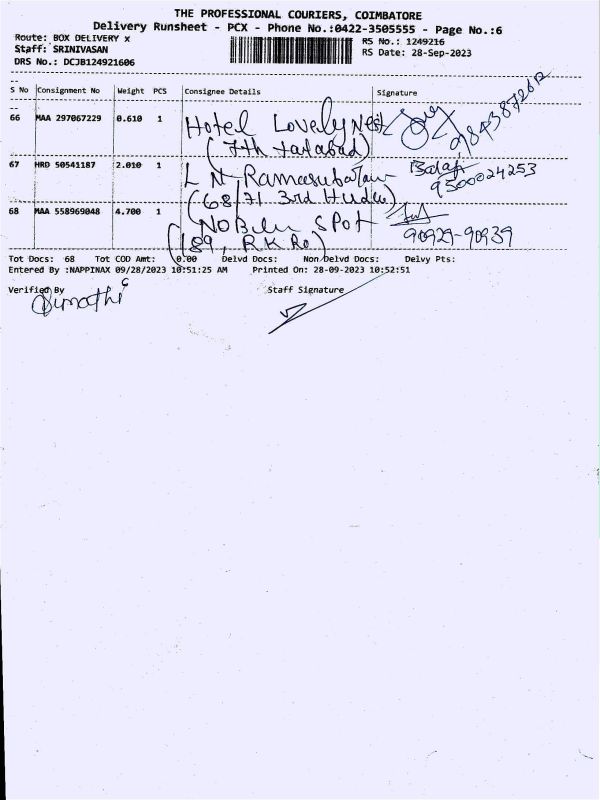 THE PROFESSIONAL COURIERS, COIMBATORE
Delivery Runsheet - PCX - Phone No.:0422-3505555 - Page No.:6
Route: BOX DELIVERY x RS No.: 1249216
Staff: SRINIVASAN RS Date: 28-Sep-2023
DRS No.: DCJB124921606
S No Consignment No Weight PCS Consignee Details Signature
66 MAA 297067229 0.610 1 Hotel Lovely Nest
(7th tatabad)
67 HRD 50541187 2.010 1 L N Ramasubaram Balaji
(68/71 3rd Hudco) 9500024253
68 MAA 558969048 4.700 1 Nobile SPot
(189, R K Ro) 90929-90939
Tot Docs: 68 Tot COD Amt: 0.00 Delvd Docs: Non/Delvd Docs: Delvy Pts:
Entered By :NAPPINAX 09/28/2023 10:51:25 AM Printed On: 28-09-2023 10:52:51
Verified By Staff Signature